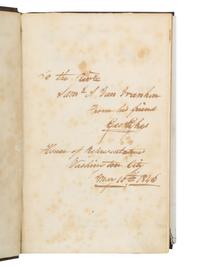 To the
Sam. A. Van Vranken
From his friend
Geo. Sykes
House of Representatives
Washington City
May 10th 1846